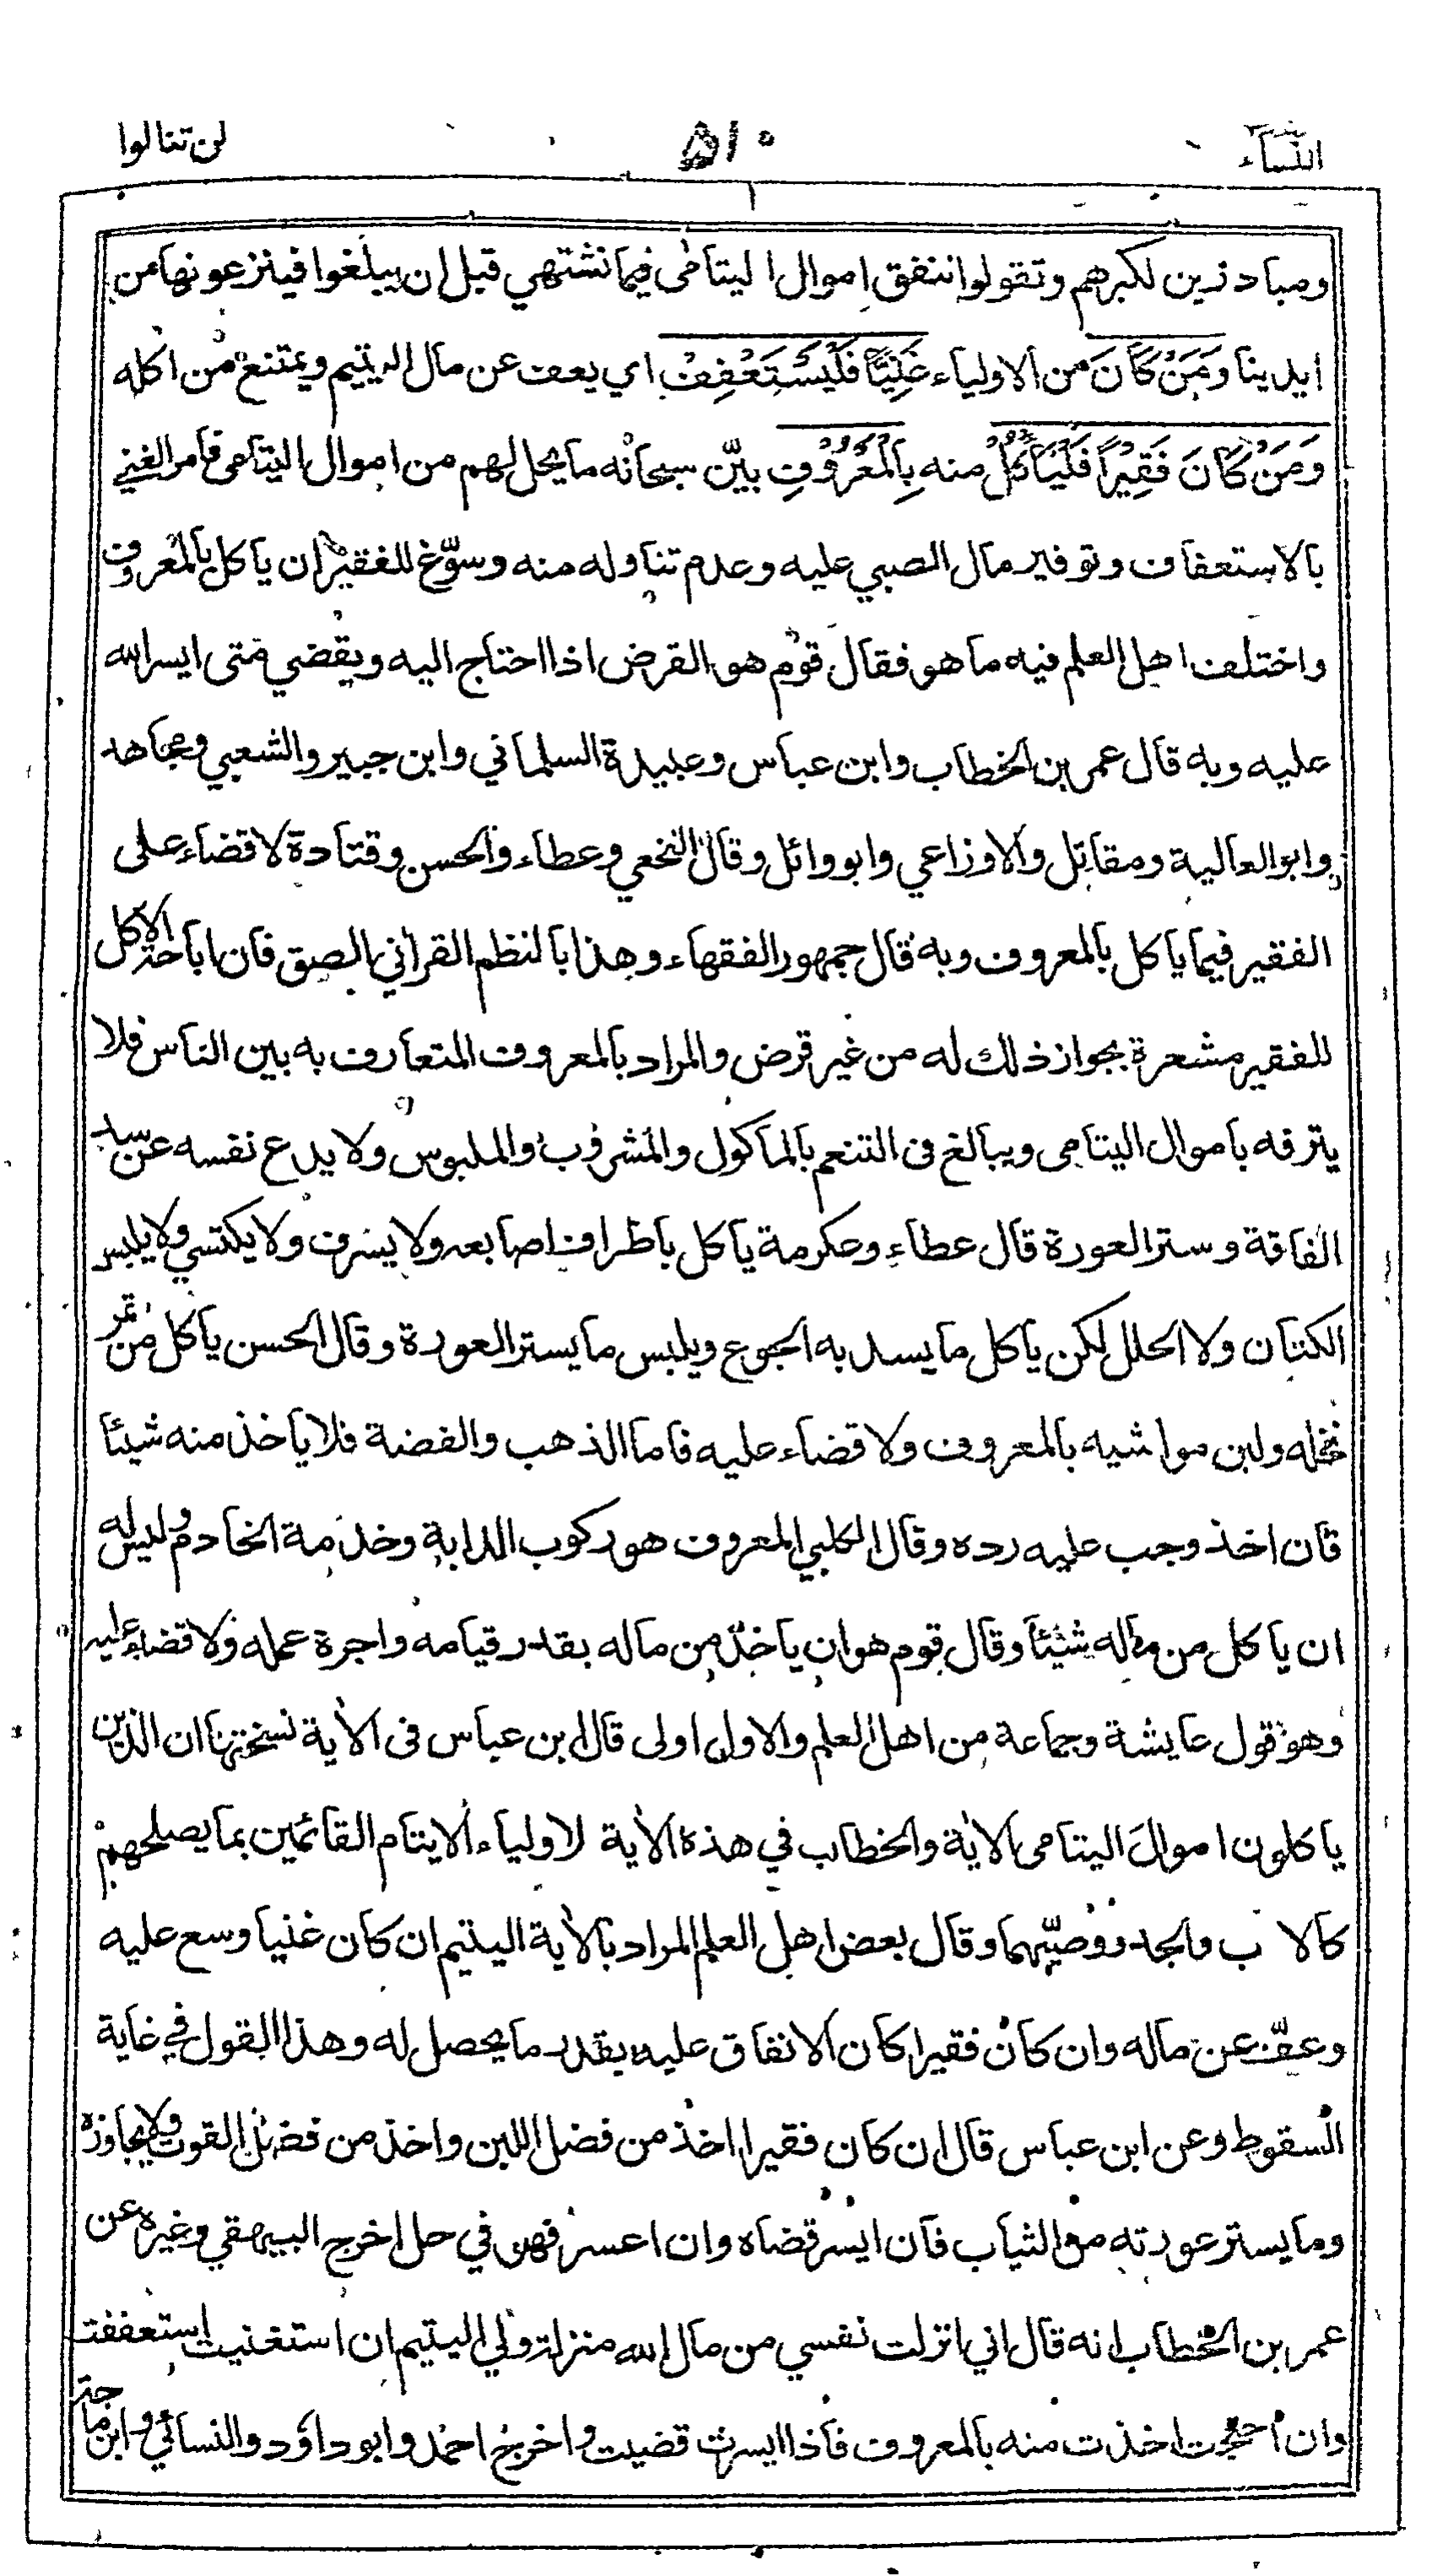 النساء ٥١٠ لن تنالوا
ومبادرين لكبرهم وتقولوا ننفق اموال اليتامى فيما نشتهي قبل ان يبلغوا فينزعونها من
ايدينا وَمَنْ كَانَ من الاولياء غَنِيًّا فَلْيَسْتَعْفِفْ اي يعف عن مال اليتيم ويمتنع من اكله
وَمَنْ كَانَ فَقِيرًا فَلْيَأْكُلْ منه بِالْمَعْرُوْفِ بيّن سبحانه ما يحل لهم من اموال اليتامى فامر الغني
بالاستعفاف وتوفير مال الصبي عليه وعدم تناوله منه وسوّغ للفقير ان ياكل بالمعروف
واختلف اهل العلم فيه ما هو فقال قوم هو القرض اذا احتاج اليه ويقضي متى ايسر الله
عليه وبه قال عمر بن الخطاب وابن عباس وعبيدة السلماني وابن جبير والشعبي ومجاهد
وابو العالية ومقاتل والاوزاعي وابو وائل وقال النخعي وعطاء والحسن وقتادة لا قضاء على
الفقير فيما ياكل بالمعروف وبه قال جمهور الفقهاء وهذا بالنظم القراني الصق فان اباحة الاكل
للفقير مشعرة بجواز ذلك له من غير قرض والمراد بالمعروف المتعارف به بين الناس فلا
يترفه باموال اليتامى ويبالغ فى التنعم بالماكول والمشروب والملبوس ولا يدع نفسه عن سد
الفاقة وستر العورة قال عطاء وعكرمة ياكل باطراف اصابعه ولا يسرف ولا يكتسي ولا يلبس
الكتان ولا الحلل لكن ياكل ما يسد به الجوع ويلبس ما يستر العورة وقال الحسن ياكل من ثمر
نخله ولبن مواشيه بالمعروف ولا قضاء عليه فاما الذهب والفضة فلا ياخذ منه شيئا
فان اخذ وجب عليه رده وقال الكلبي المعروف هو ركوب الدابة وخدمة الخادم وليس له
ان ياكل من ماله شيئا وقال قوم هو ان ياخذ من ماله بقدر قيامه واجرة عمله ولا قضاء عليه
وهو قول عايشة وجماعة من اهل العلم والاول اولى قال ابن عباس فى الاية نسختها ان الذين
ياكلون اموال اليتامى الاية والخطاب في هذه الاية لاولياء الايتام القائمين بما يصلحهم
كالاب والجد ووصيّهما وقال بعض اهل العلم المراد بالاية اليتيم ان كان غنيا وسع عليه
وعفّ عن ماله وان كان فقيرا كان الانفاق عليه بقدر ما يحصل له وهذا القول في غاية
السقوط وعن ابن عباس قال ان كان فقيرا اخذ من فضل اللبن واخذ من فضل القوت ولا يجاوزه
وما يستر عورته من الثياب فان ايسر قضاه وان اعسر فهو في حل اخرج البيهقي وغيره عن
عمر بن الخطاب انه قال اني انزلت نفسي من مال الله منزلة ولي اليتيم ان استغنيت استعففت
وان احتجت اخذت منه بالمعروف فاذا ايسرت قضيت واخرج احمد وابو داود والنسائي وابن ماجة